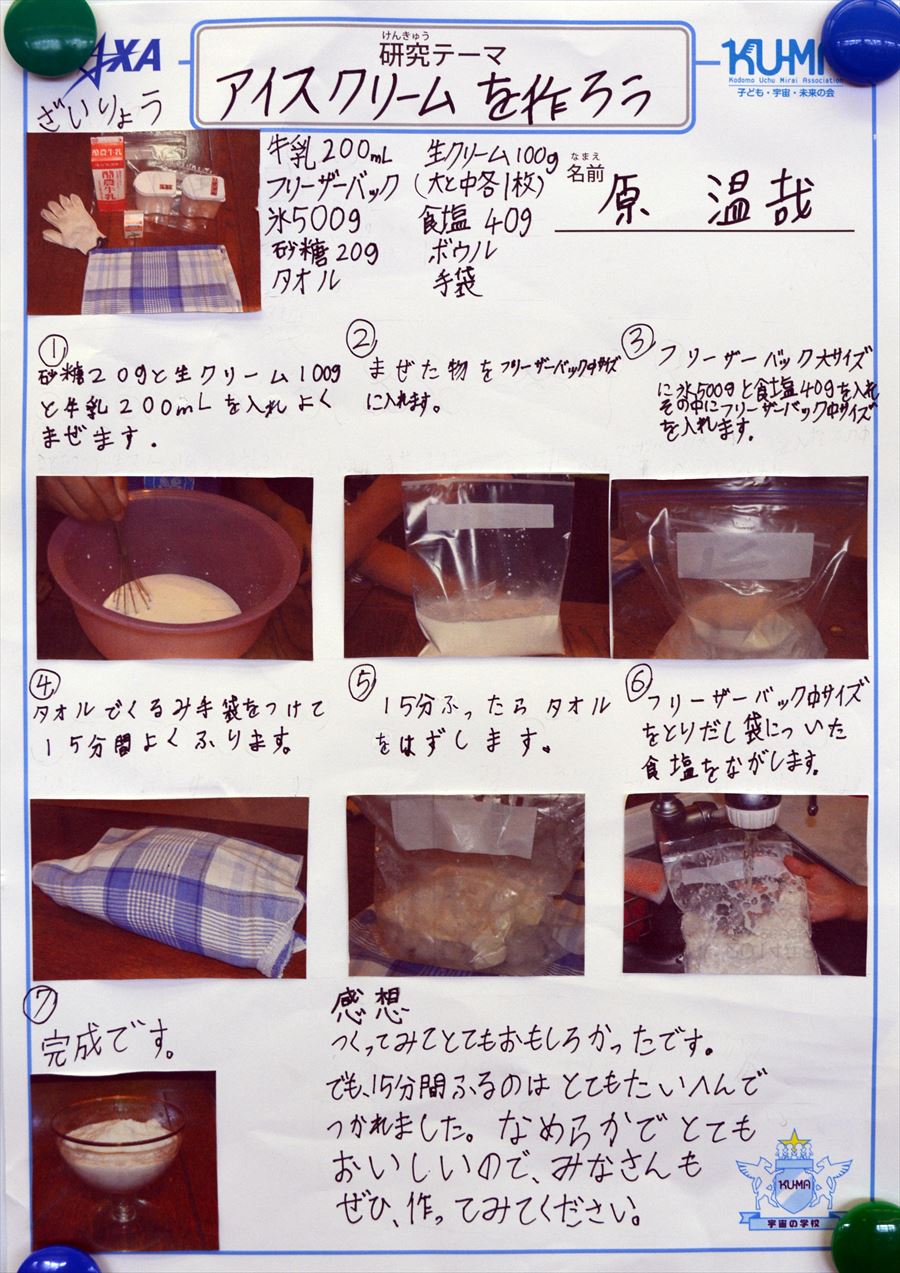 JAXA
けんきゅう
研究テーマ
アイスクリームを作ろう
KUMA
Kodomo Uchu Mirai Association
子ども・宇宙・未来の会
ざいりょう
牛乳200mL 生クリーム100g
フリーザーバック(大と中各1枚)
氷500g 食塩40g
砂糖20g ボウル
タオル 手袋
なまえ
名前 原 温哉
①
砂糖20gと生クリーム100g
と牛乳200mLを入れよく
まぜます.
②
まぜた物をフリーザーバック中サイズ
に入れます。
③
フリーザーバック大サイズ
に氷500gと食塩40gを入れ
その中にフリーザーバック中サイズ
を入れます。
④
タオルでくるみ手袋をつけて
15分間よくふります。
⑤
15分ふったらタオル
をはずします。
⑥
フリーザーバック中サイズ
をとりだし袋についた
食塩をながします。
⑦
完成です。
感想
つくってみてとてもおもしろかったです。
でも、15分間ふるのはとてもたいへんで
つかれました。なめらかでとても
おいしいので、みなさんも
ぜひ、作ってみてください。
KUMA
宇宙の学校